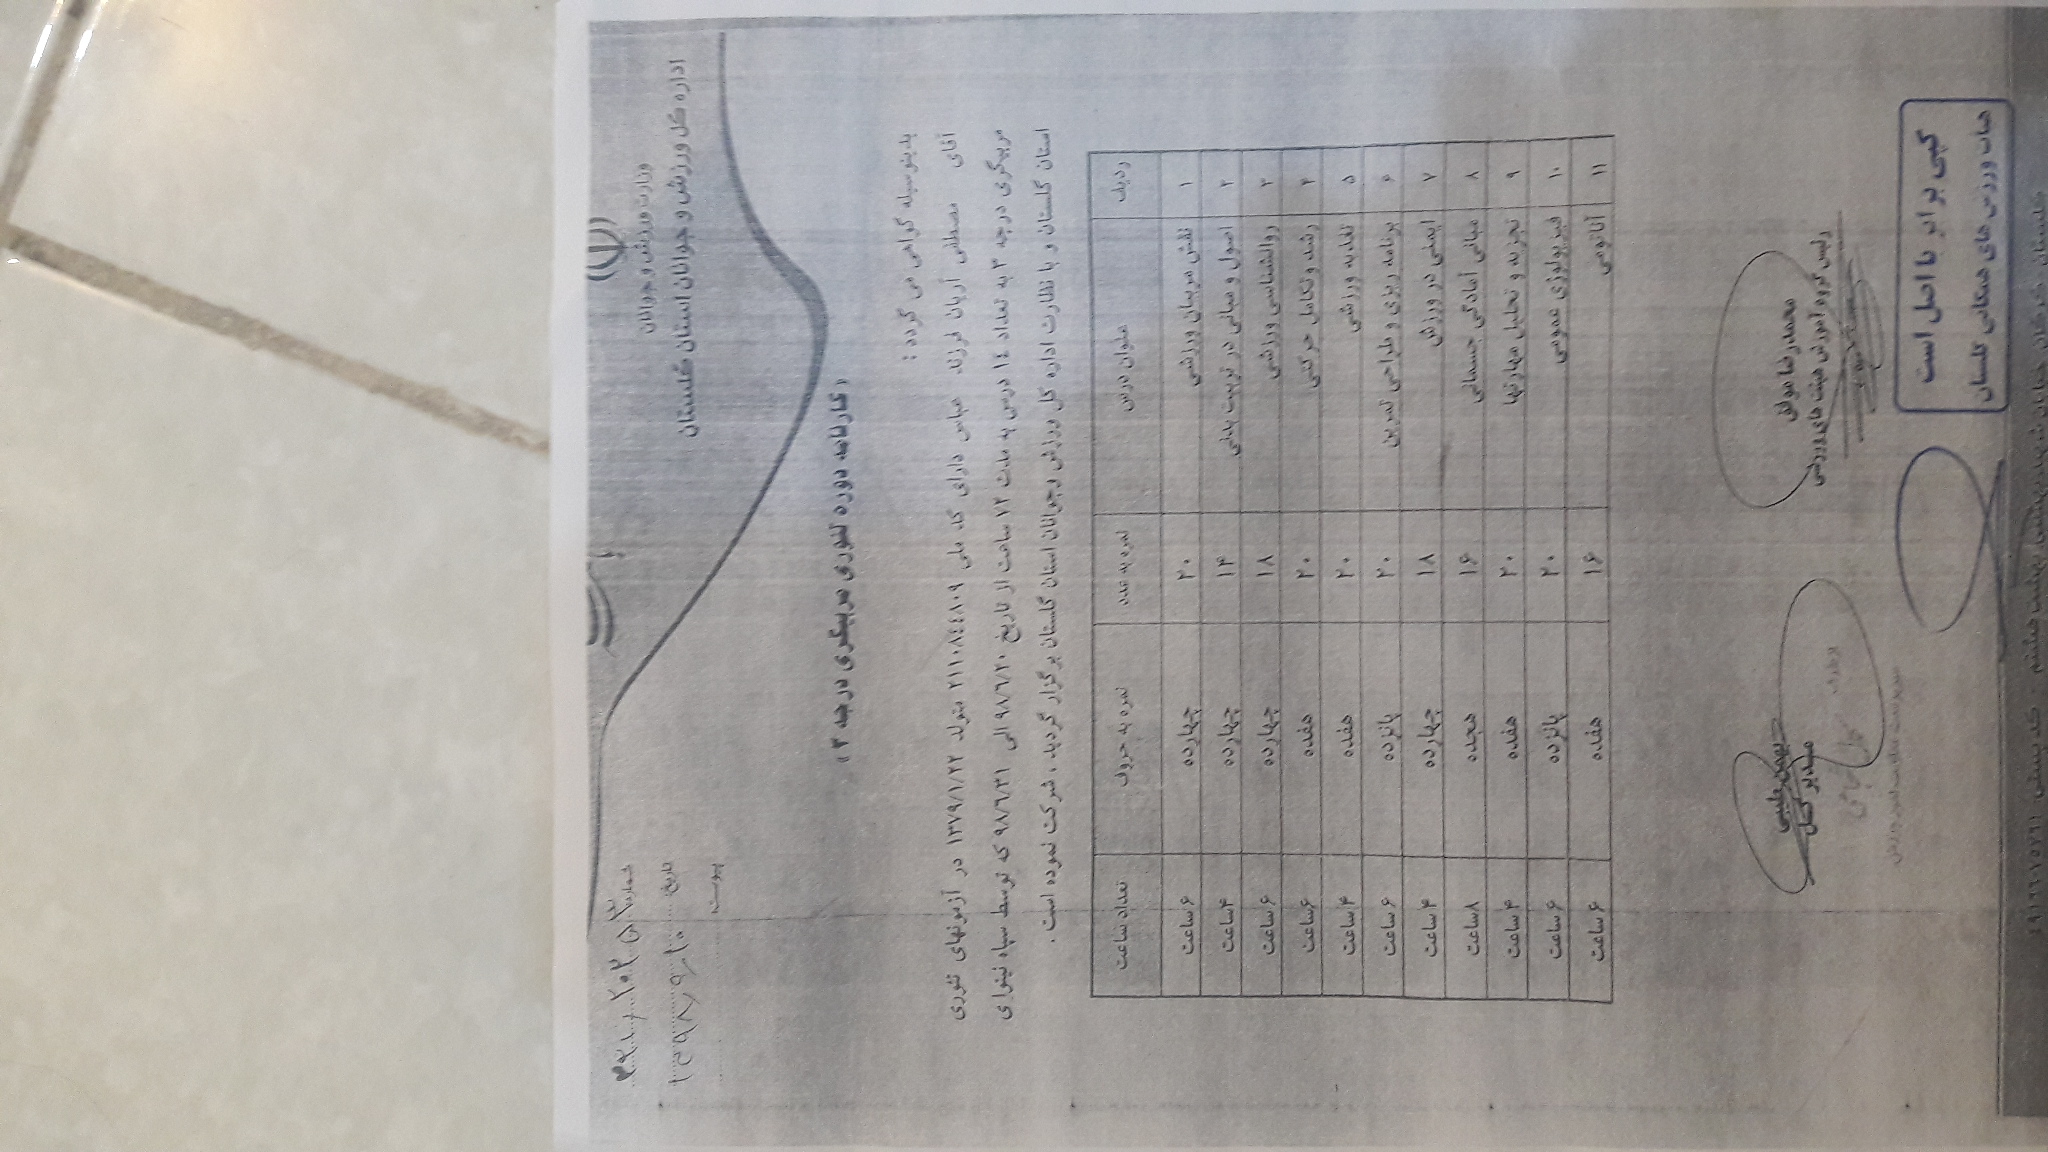 وزارت ورزش و جوانان
اداره کل ورزش و جوانان استان گلستان
شماره
تاریخ ۱۳۹۸/۹/۱۰
پیوست
«کارنامه دوره تئوری مربیگری درجه ۳»
بدینوسیله گواهی می گردد :
آقای مصطفی آریان فرزند عباس دارای کد ملی ۲۱۱۰۸٤٤۸۰۹ متولد ۱۳۷۹/۱/۲۲ در آزمونهای تئوری
مربیگری درجه ۳ به تعداد ۱٤ درس به مدت ۷۲ ساعت از تاریخ ۹۸/٦/۲۰ الی ۹۸/٦/۳۱ که توسط سپاه نینوا ی
استان گلستان و با نظارت اداره کل ورزش وجوانان استان گلستان برگزار گردید ، شرکت نموده است .
ردیف عنوان درس نمره به عدد نمره به حروف تعداد ساعت
۱ نقش مربیان ورزشی ۲۰ چهارده ۶ ساعت
۲ اصول و مبانی در تربیت بدنی ۱۴ چهارده ۴ ساعت
۳ روانشناسی ورزشی ۱۸ چهارده ۶ ساعت
۴ رشد و تکامل حرکتی ۲۰ هفده ۶ ساعت
۵ تغذیه ورزشی ۲۰ هفده ۴ ساعت
۶ برنامه ریزی و طراحی تمرین ۲۰ پانزده ۶ ساعت
۷ ایمنی در ورزش ۱۸ چهارده ۴ ساعت
۸ مبانی آمادگی جسمانی ۱۶ هجده ۸ ساعت
۹ تجزیه و تحلیل مهارتها ۲۰ هفده ۴ ساعت
۱۰ فیزیولوژی عمومی ۲۰ پانزده ۶ ساعت
۱۱ آناتومی ۱۶ هفده ۶ ساعت
محمدرضا موقر
رئیس گروه آموزش هیئت های ورزشی
بهمن طیبی
مدیر کل
کپی برابر با اصل است
هیات ورزش های همگانی گلستان